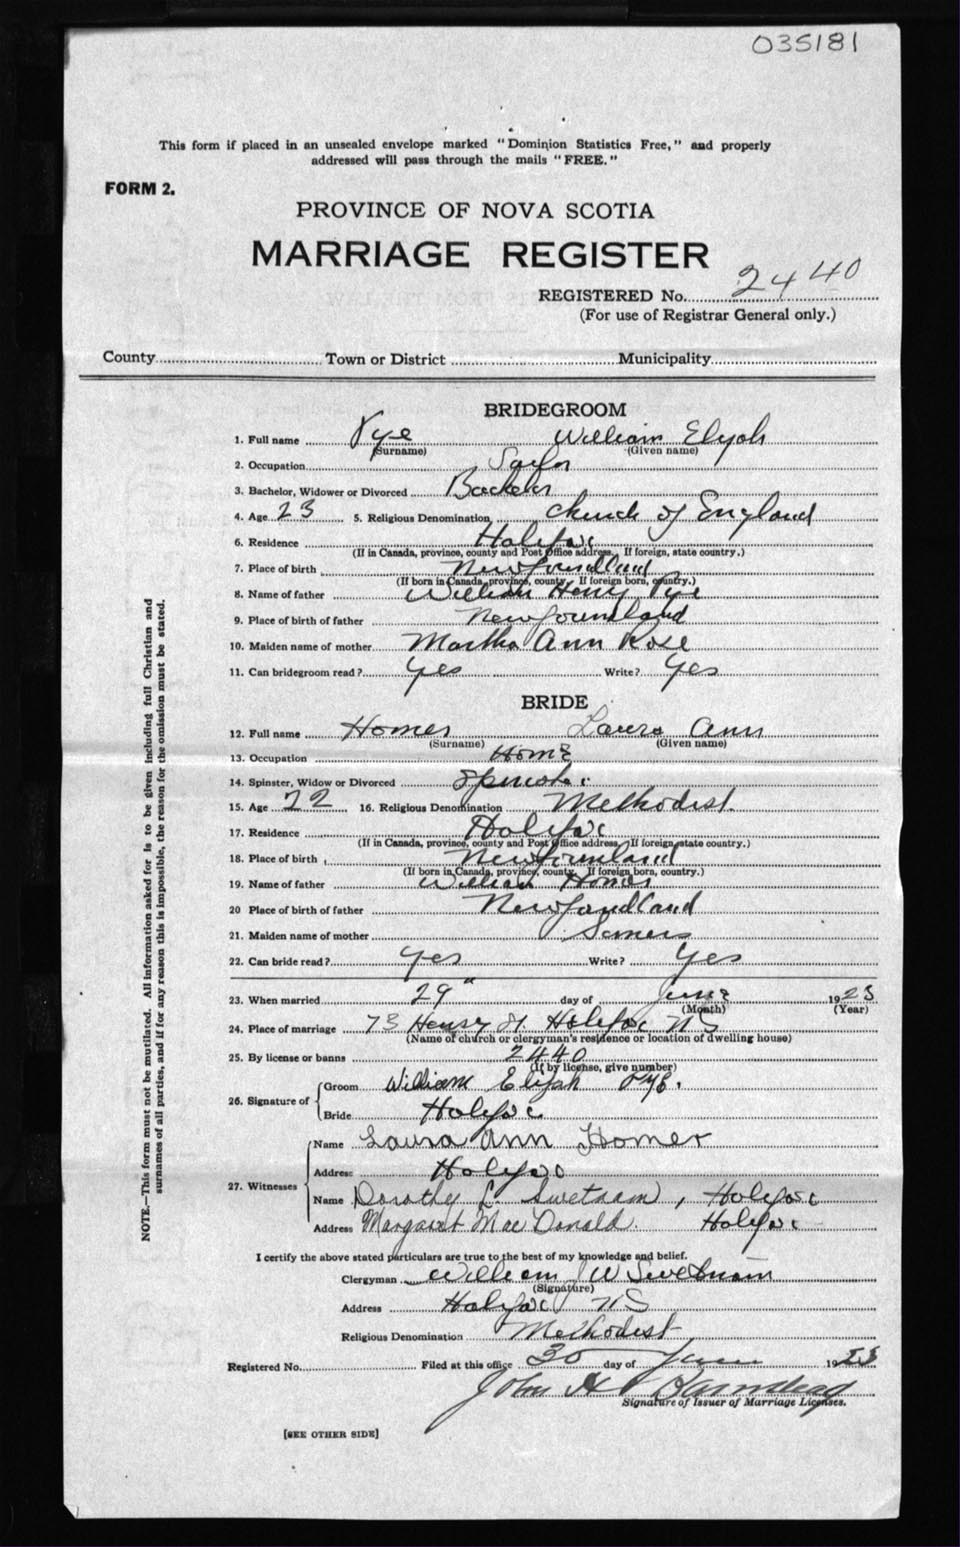 035181
This form if placed in an unsealed envelope marked "Dominion Statistics Free," and properly
addressed will pass through the mails "FREE."
FORM 2.
PROVINCE OF NOVA SCOTIA
MARRIAGE REGISTER
REGISTERED No. 2440
(For use of Registrar General only.)
County Town or District Municipality
BRIDEGROOM
1. Full name Pye William Elijah
(Surname) (Given name)
2. Occupation Sailor
3. Bachelor, Widower or Divorced Bachelor
4. Age 23 5. Religious Denomination Church of England
6. Residence Halifax
(If in Canada, province, county and Post Office address. If foreign, state country.)
7. Place of birth Newfoundland
(If born in Canada, province, county. If foreign born, country.)
8. Name of father William Henry Pye
9. Place of birth of father Newfoundland
10. Maiden name of mother Martha Ann Rose
11. Can bridegroom read? Yes Write? Yes
BRIDE
12. Full name Homer Laura Ann
(Surname) (Given name)
13. Occupation Home
14. Spinster, Widow or Divorced Spinster
15. Age 22 16. Religious Denomination Methodist
17. Residence Halifax
(If in Canada, province, county and Post Office address. If foreign, state country.)
18. Place of birth Newfoundland
(If born in Canada, province, county. If foreign born, country.)
19. Name of father William Homer
20 Place of birth of father Newfoundland
21. Maiden name of mother Somers
22. Can bride read? Yes Write? Yes
23. When married 29" day of June 1923
(Month) (Year)
24. Place of marriage 73 Henry St. Halifax NS
(Name of church or clergyman's residence or location of dwelling house)
25. By license or banns 2440
(If by license, give number)
26. Signature of Groom William Elijah Pye.
Bride Halifax
27. Witnesses Name Laura Ann Homer
Address Halifax
Name Dorothy L. Swetnam, Halifax
Address Margaret MacDonald. Halifax
I certify the above stated particulars are true to the best of my knowledge and belief.
Clergyman William J W Swetnam
(Signature)
Address Halifax NS
Religious Denomination Methodist
Registered No. Filed at this office 30 day of June 1923
John H Barnstead
Signature of Issuer of Marriage Licenses.
[SEE OTHER SIDE]
NOTE.—This form must not be mutilated. All information asked for is to be given including full Christian and
surnames of all parties, and if for any reason this is impossible, the reason for the omission must be stated.